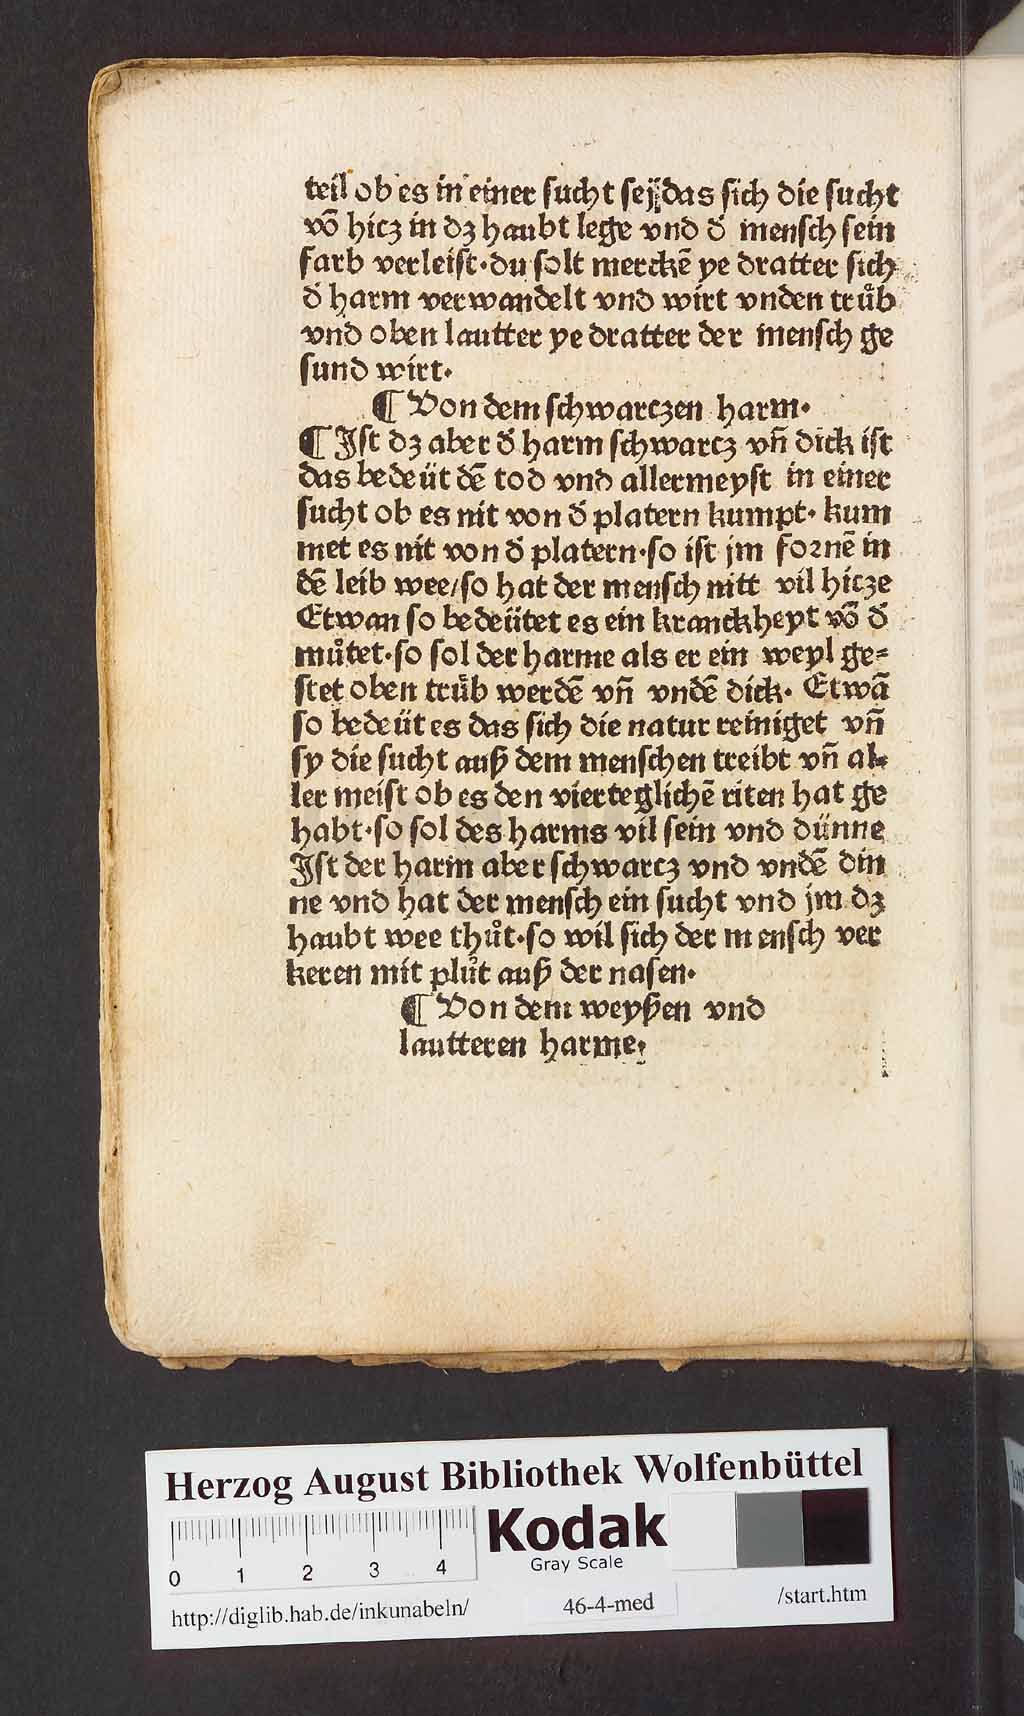 teil ob es in einer sucht seÿ das sich die sucht
võ hicz in dʒ haubt lege vnd d̾ mensch sein
farb verleist·du solt merckẽ ye dratter sich
d̾ harm verwandelt vnd wirt vnden truͤb
vnd oben lautter ye dratter der mensch ge
sund wirt·
¶ Von dem schwarczen harm·
¶ Ist dʒ aber d̾ harm schwarcz vñ dick ist
das bedeüt dẽ tod vnd allermeyst in einer
sucht ob es nit von d̾ platern kumpt· kum
met es nit von d̾ platern·so ist jm fornẽ in
dẽ leib wee/so hat der mensch nitt vil hicze
Etwan so bedeütet es ein kranckheyt võ d̾
muͦtet·so sol der harme als er ein weyl ge⸗
stet oben truͤb werdẽ vñ vndẽ dick· Etwã
so bedeüt es das sich die natur reiniget vñ
sy die sucht auß dem menschen treibt vñ al⸗
ler meist ob es den vierteglichẽ riten hat ge
habt·so sol des harms vil sein vnd dünne
Ist der harm aber schwarcz vnd vndẽ din
ne vnd hat der mensch ein sucht vnd jm dʒ
haubt wee thuͦt·so wil sich der mensch ver
keren mit pluͦt auß der nasen·
¶ Von dem weyßen vnd
lautteren harme·
Herzog August Bibliothek Wolfenbüttel
Kodak
Gray Scale
0 1 2 3 4
http://diglib.hab.de/inkunabeln/ 46-4-med /start.htm